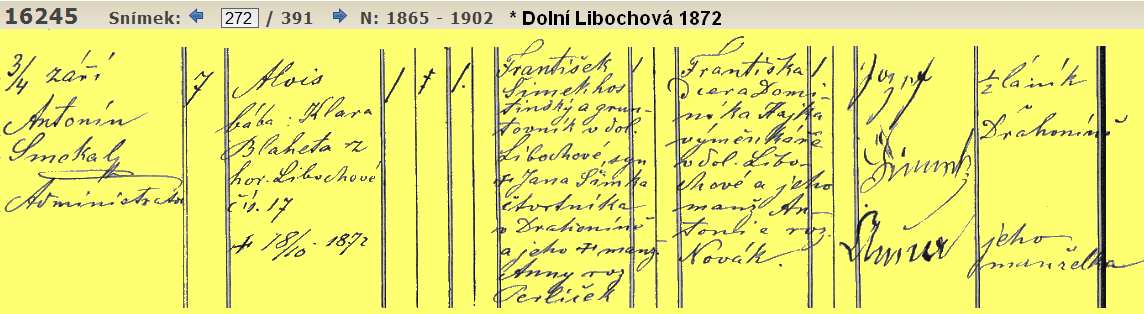 16245 Snímek: 272 / 391 N: 1865 - 1902 * Dolní Libochová 1872
3/4 září
Antonín
Smekal
Administrator
7
Alois
bába: Klara
Blaheta z
hor. Libochové
čís. 17
+ 18/10 1872
1 + 1.
František 1
Šimek hos
tinský a grun-
tovník v dol.
Libochové, syn
+ Jana Šimka
čtvrtníka
v Drahoníně
a jeho + manž.
Anny roz
Perlíček
Františka 1
dcera Domi
nika Hájka
výměnkáře
v dol. Libo-
chové a jeho
manž. An-
tonie roz.
Novák.
Josef
Šimek
Anna
½ láník
v
Drahoníně
jeho
manželka